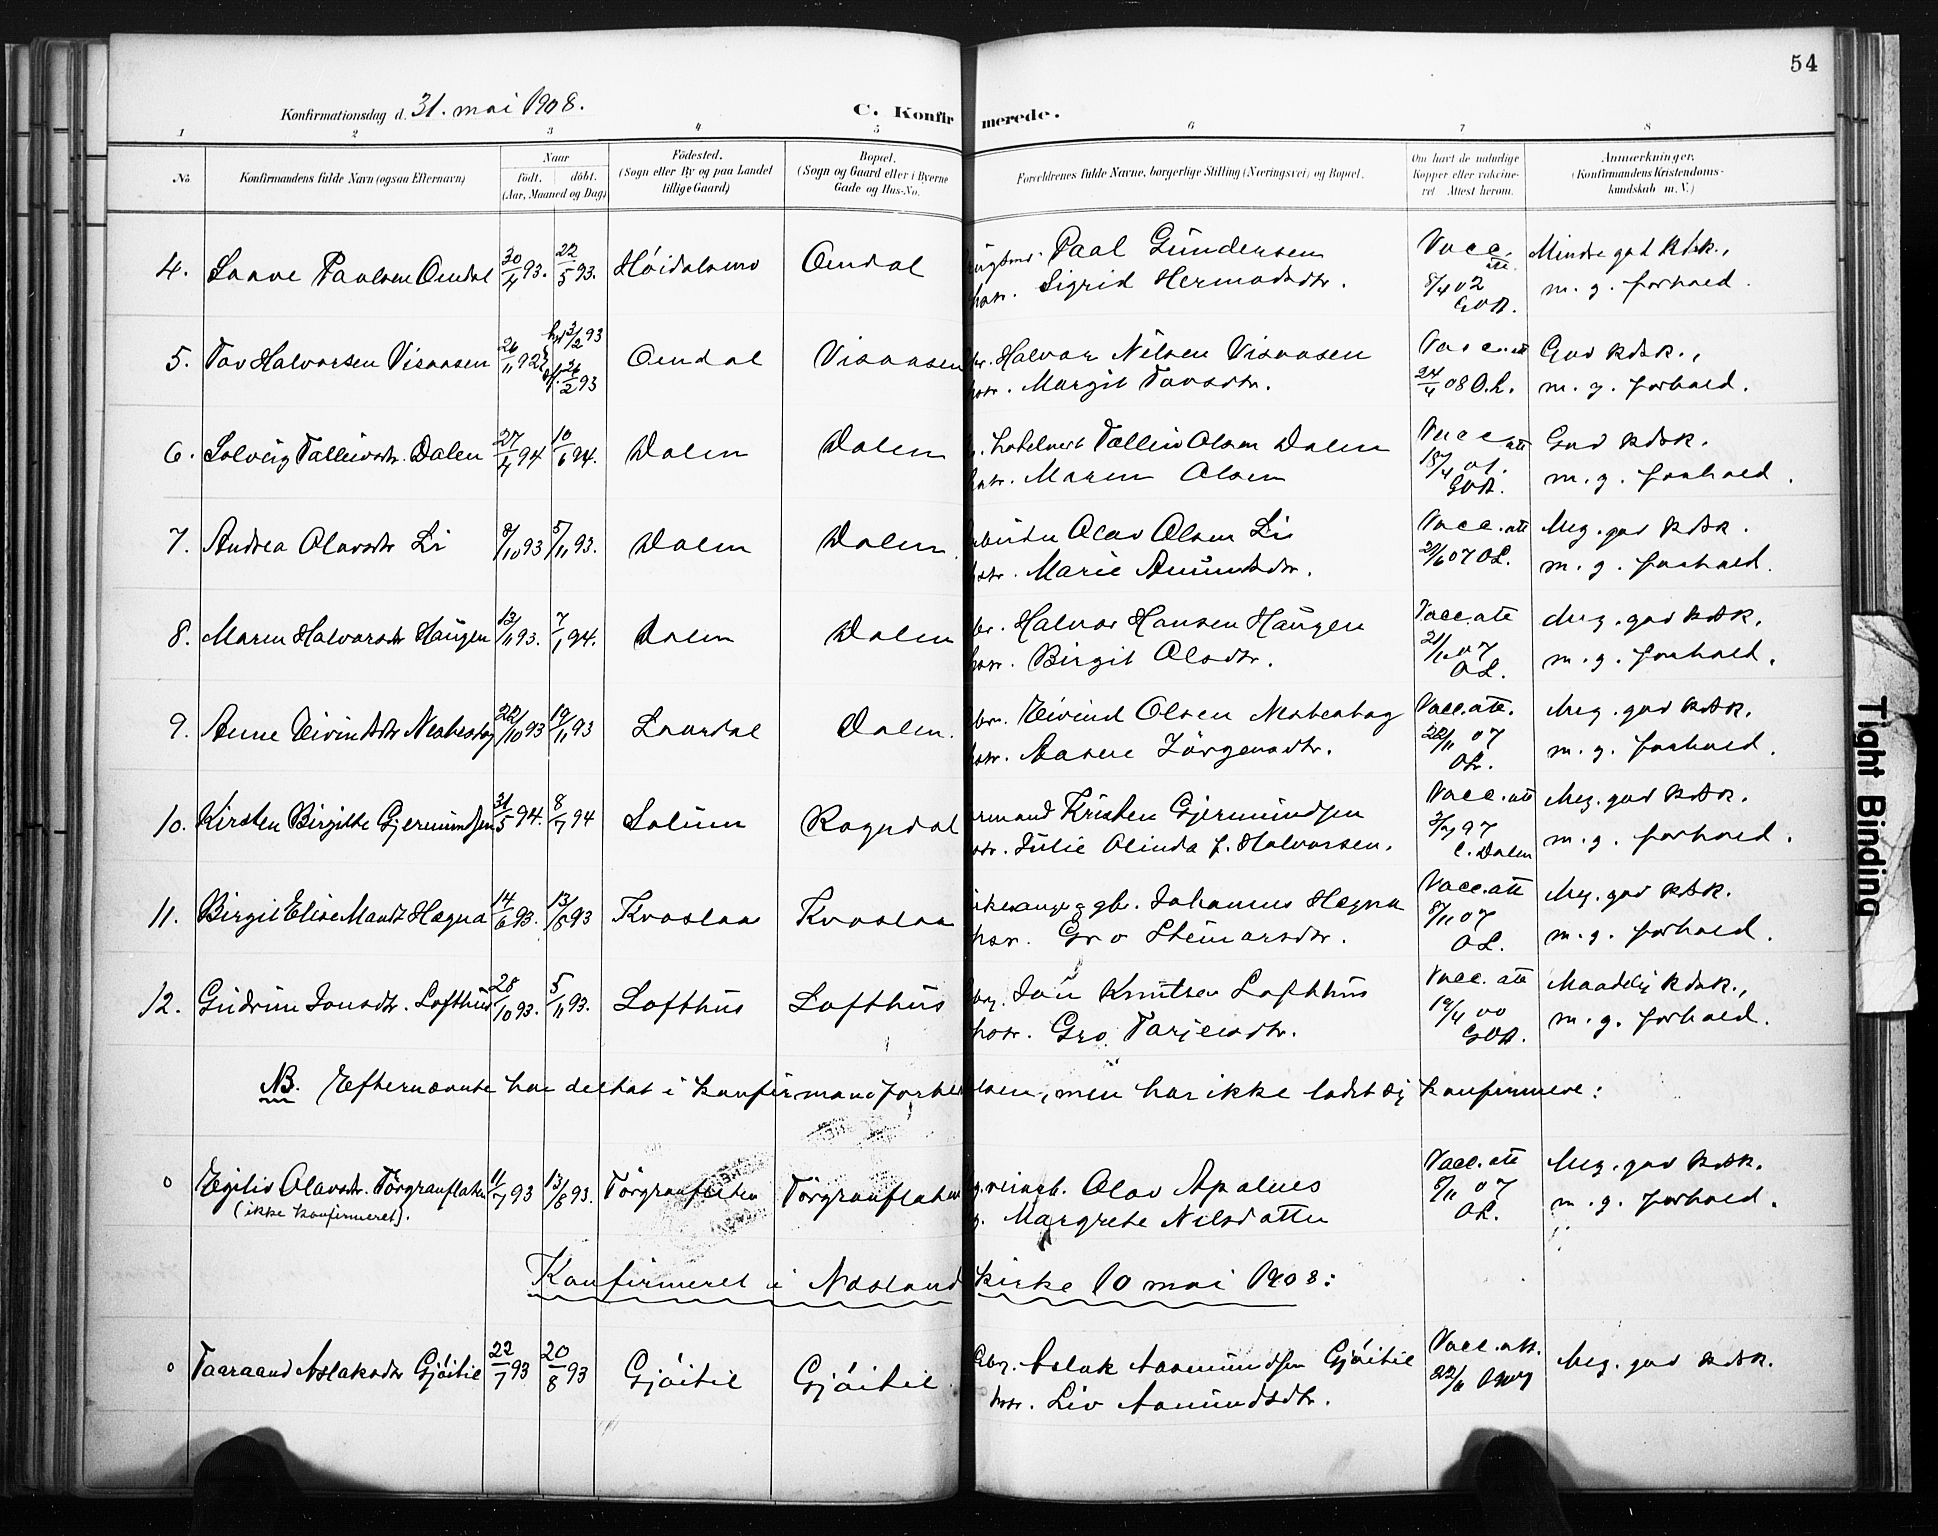 54
Konfirmationsdag d. 31. mai 1908.
C. Konfirmerede.
1 2 3 4 5 6 7 8
No.
Konfirmandens fulde Navn (ogsaa Efternavn)
Naar
født. døbt.
(Aar, Maaned og Dag)
Födested.
(Sogn eller By og paa Landet
tillige Gaard)
Bopæl.
(Sogn og Gaard eller i Byerne
Gade og Hus-No.
Forældrenes fulde Navne, borgerlige Stilling (Næringsvei) og Bopæl.
Om havt de naturlige
Kopper eller vakcine-
ret Attest herom.
Anmærkninger,
(Konfirmandens Kristendoms-
kundskab m. V.)
4. Paulsen Omdal 30/4 93. 22/5 93. Høidalsmo Omdal Paal Gundersen Vacc. att. Mindre god kdsk.,
hstr. Sigrid Hermodsdtr. 8/4 02 m. g. forhold.
5. Tov Halvorsen Visaasen 26/11 92 3/2 93 26/2 93 Omdal Visaasen br. Halvor Nilsen Visaasen Vacc. att God kdsk.,
hstr. Margit Tovsdtr. 24/4 08 O.L. m. g. forhold.
6. Solveig Talleivsdtr. Dalen 27/4 94 10/6 94. Dalen Dalen hotelvert Talleiv Olsen Dalen Vacc att God kdsk.
hstr. Maren Olsen 15/4 01. m. g. forhold.
7. Andrea Olavsdtr Li 8/10 93 5/11 93. Dalen Dalen Olav Olsen Li Vacc. att Meg. god kdsk.
hstr. Marie Amundsdtr. 21/6 07 OL. m. g. forhold.
8. Maren Halvorsdtr Haugen 13/11 93. 7/1 94. Dalen Dalen br. Halvor Hansen Haugen Vacc. att Meg. god kdsk.
hstr. Birgit Olsdtr. 21/11 07 OL. m. g. forhold.
9. Anne Eivindsdtr Nesbestog 22/10 93 19/11 93 Laurdal Dalen. Eivind Olsen Vacc. att. Meg. god kdsk.
hstr. Aasne Jörgensdtr. 22/11 07 OL. m. g. forhold.
10. Kirsten Birgitte Gjermundsen 31/5 94. 8/7 94 Solum Rogndal Kristen Gjermundsen Vacc. att Meg. god kdsk.
hstr. Julie Olinda f. Halvorsen. 97 C. Dalen m. g. forhold.
11. Birgit Elise Mandt Hægna 14/6 93. 13/8 93 Kvaslaa Kvaslaa gbr. Johannes Hægna Vacc. att Meg. god kdsk.
hstr. Gro Steinarsdtr. 8/11 07 OL. m. g. forhold.
12. Gudrun Jonsdtr. Lofthus 28/10 93. 5/11 93. Lofthus Lofthus Jon Knutsen Lofthus Vacc. att Maadelig kdsk.,
hstr. Gro Tarjeisdtr. 19/4 00 m. g. forhold.
NB. Efternævnte har deltat i konfirmandforberedelsen, men har ikke ladet sig konfirmere:
0 Egilio Olavsdtr. Törgranflaten 11/7 93 13/8 93. Törgranflaten Törgranflaten Olav Apalnes Vacc. att Meg. god kdsk.
(ikke konfirmeret). Margrete Nilsdatter 8/11 07 OL. m. g. forhold.
Konfirmeret i Næsland kirke 10 mai 1908:
0 Taaraand Aslaksdtr Gjøitil 22/7 93 20/8 93 Gjøitil Gjøitil Gbr. Aslak Aamundsen Gjøitil Vacc. att. Meg. god kdsk.
hstr. Liv Aamundsdtr.
Tight Binding